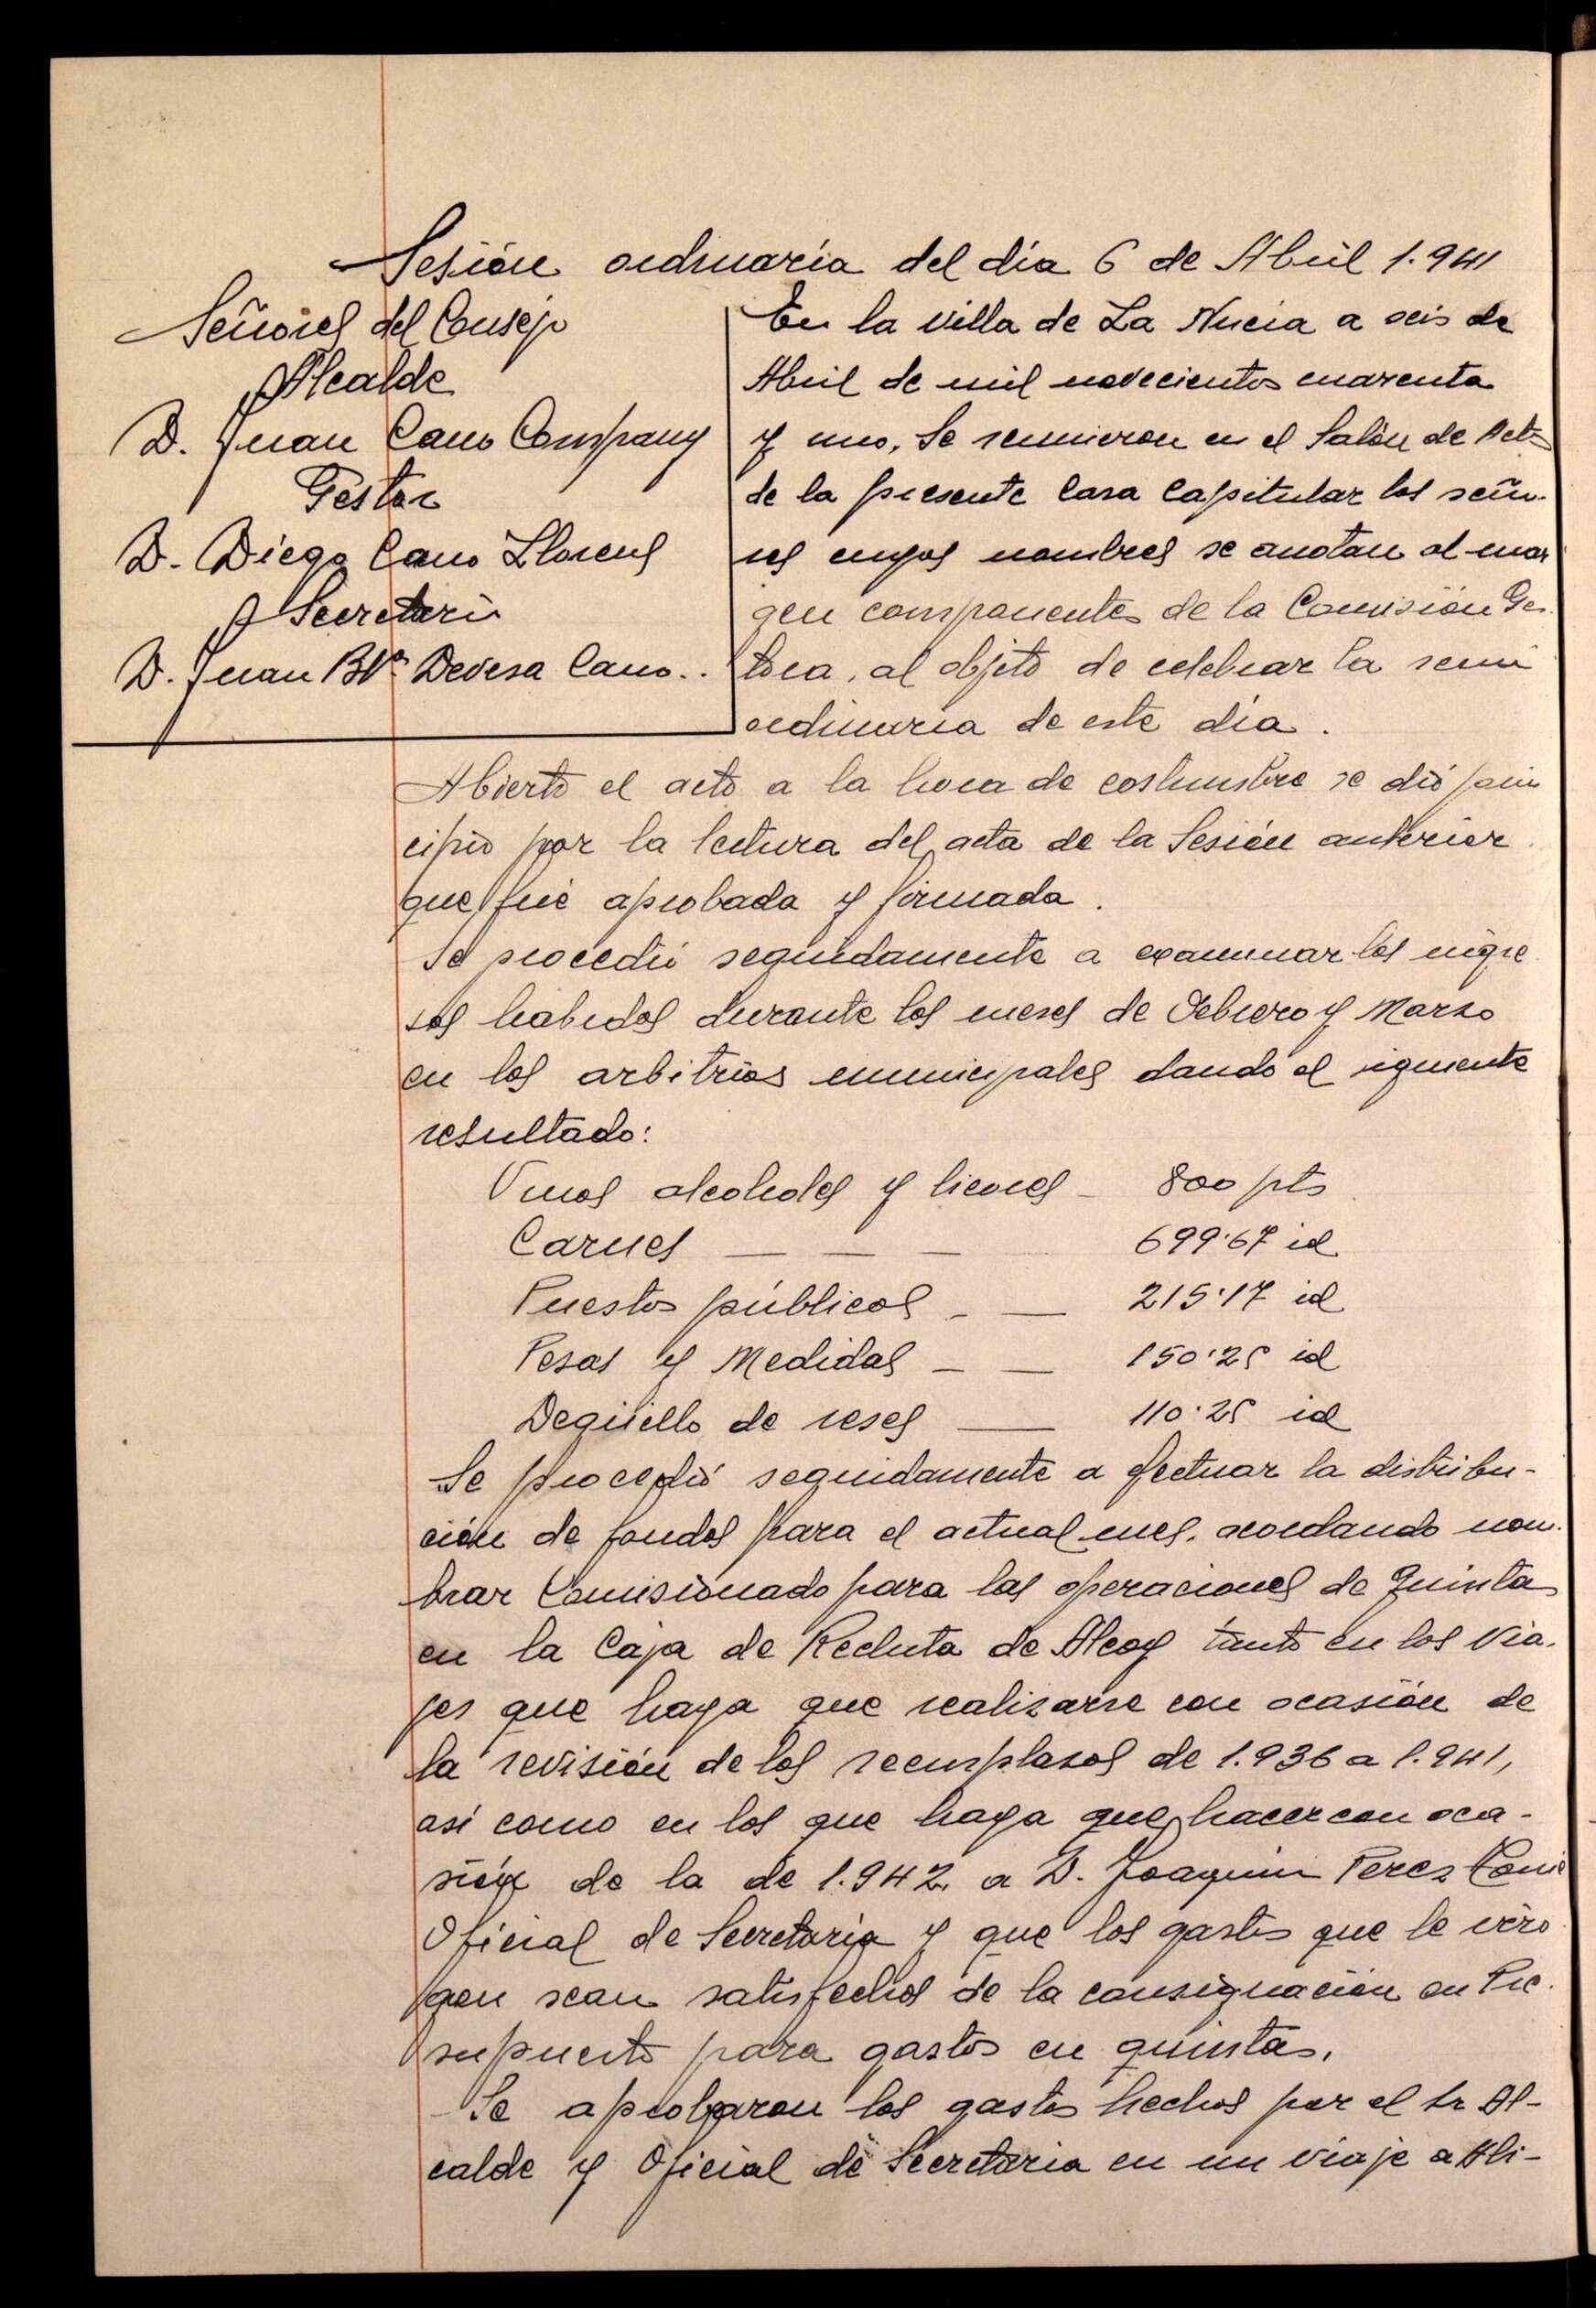 Sesión ordinaria del día 6 de Abril 1.941
Señores del Consejo
Alcalde
D. Juan Cano Company
Gestor
D. Diego Cano Llorens
Secretario
D. Juan Bta Devesa Cano..
En la villa de La Nucia a seis de
Abril de mil novecientos cuarenta
y uno, Se reunieron en el Salón de Actos
de la presente Casa Capitular los seño-
res cuyos nombres se anotan al mar
gen componentes de la Comisión Ges
tora, al objeto de celebrar la
ordinaria de este día.
Abierto el acto a la hora de costumbre se dió prin
cipio por la lectura del acta de la Sesión anterior
que fué aprobada y firmada.
Se procedió seguidamente a examinar los ingre
sos habidos durante los meses de Febrero y Marzo
en los arbitrios municipales dando el siguiente
resultado:
Vinos alcoholes y licores - 800 pts
Carnes — — — 699'67 id
Puestos públicos - — 215'17 id
Pesas y Medidas — — 150'25 id
Degüello de reses — 110'25 id
Se procedió seguidamente a efectuar la distribu-
ción de fondos para el actual mes, acordando nom-
brar Comisionado para las operaciones de Quintas
en la Caja de Recluta de Alcoy tanto en los via-
jes que haya que realizarse con ocasión de
la revisión de los reemplazos de 1.936 a 1.941,
así como en los que haya que hacer con oca-
sión de la de 1.942, a D. Joaquin Perez
Oficial de Secretaria y que los gastos que le irro
gen sean satisfechos de la consignación en Pre-
supuesto para gastos en quintas.
Se aprobaron los gastos hechos por el Sr Al-
calde y Oficial de Secretaria en un viaje a Ali-